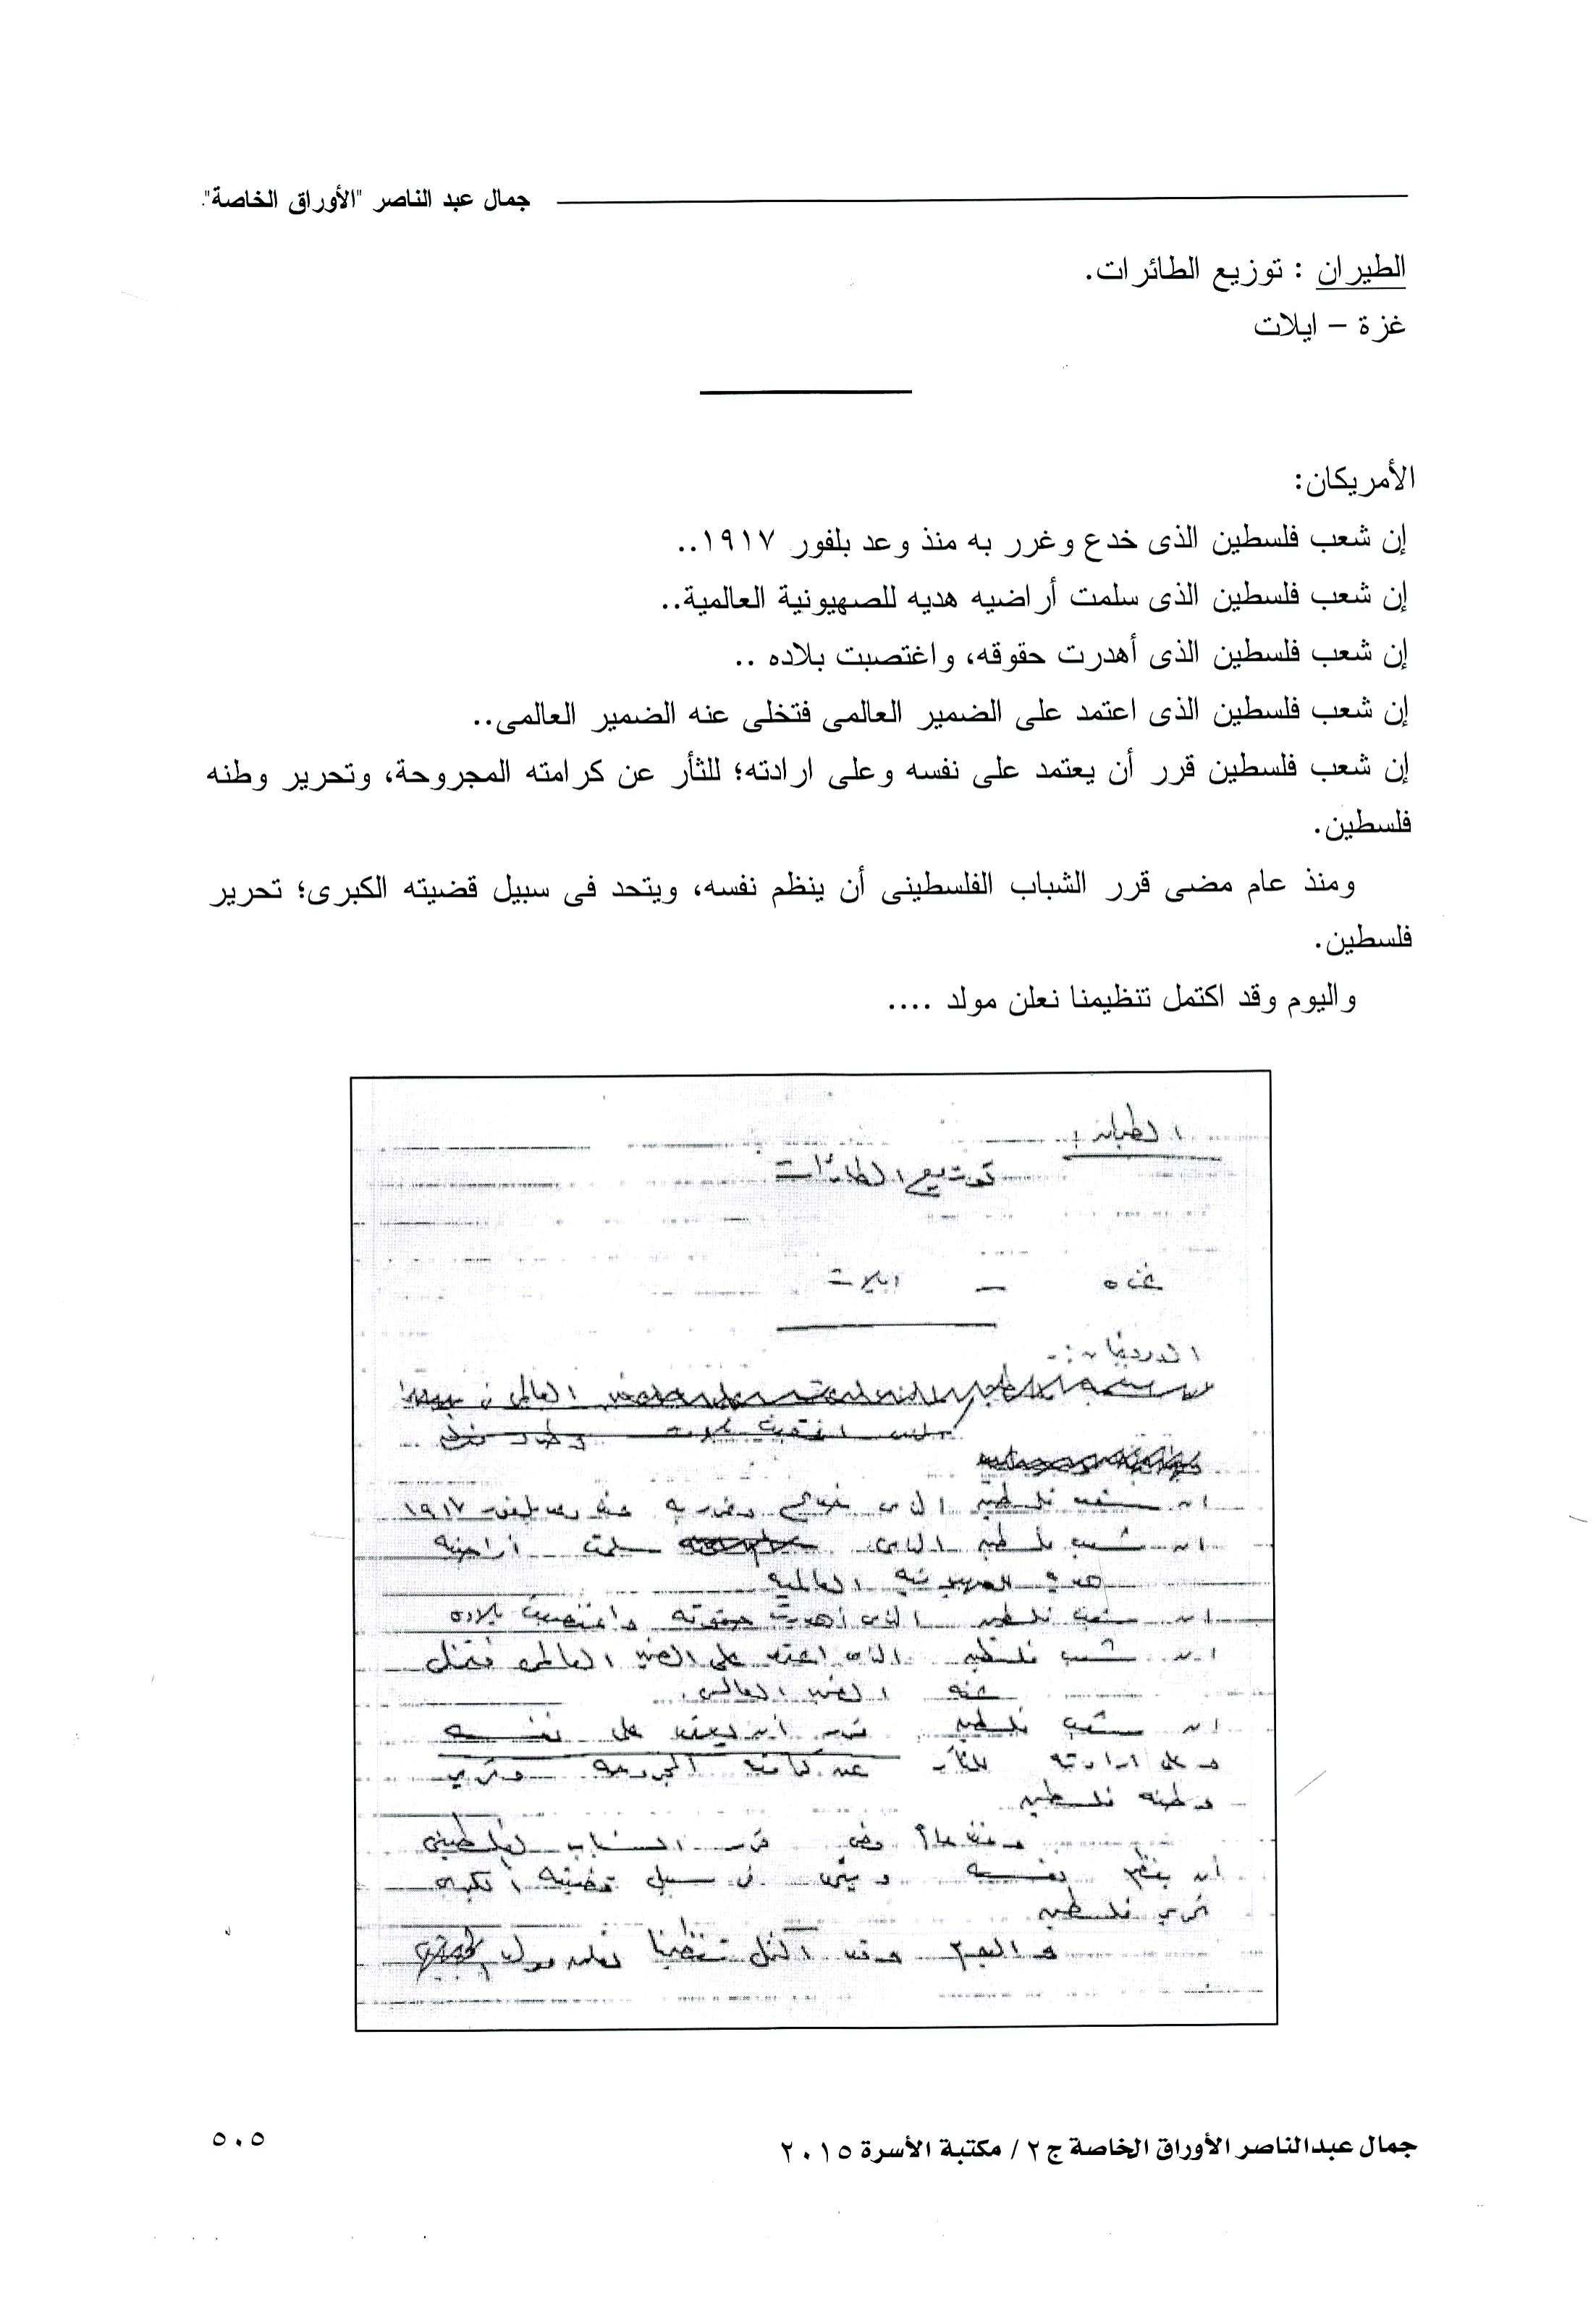 جمال عبد الناصر "الأوراق الخاصة".
الطيران : توزيع الطائرات.
غزة – ايلات
الأمريكان:
إن شعب فلسطين الذى خدع وغرر به منذ وعد بلفور ١٩١٧..
إن شعب فلسطين الذى سلمت أراضيه هديه للصهيونية العالمية..
إن شعب فلسطين الذى أهدرت حقوقه، واغتصبت بلاده ..
إن شعب فلسطين الذى اعتمد على الضمير العالمى فتخلى عنه الضمير العالمى..
إن شعب فلسطين قرر أن يعتمد على نفسه وعلى ارادته؛ للثأر عن كرامته المجروحة، وتحرير وطنه
فلسطين.
ومنذ عام مضى قرر الشباب الفلسطينى أن ينظم نفسه، ويتحد فى سبيل قضيته الكبرى؛ تحرير
فلسطين.
واليوم وقد اكتمل تنظيمنا نعلن مولد ....
الطيران :
توزيع الطائرات
غزه – ايلات
ان شعب فلسطين الذى خدع وغرر به منذ وعد بلفور ١٩١٧
ان شعب فلسطين الذى سلمت أراضيه
هديه للصهيونيه العالميه
ان شعب فلسطين الذى أهدرت حقوقه واغتصبت بلاده
ان شعب فلسطين الذى اعتمد على الضمير العالمى فتخلى
عنه الضمير العالمى .
ان شعب فلسطين قرر أن يعتمد على نفسه
وعلى ارادته للثأر عن كرامته المجروحه وتحرير
وطنه فلسطين
ومنذ عام مضى قرر الشباب الفلسطينى
أن ينظم نفسه ويتحد فى سبيل قضيته الكبرى
تحرير فلسطين
واليوم وقد اكتمل تنظيمنا نعلن مولد
جمال عبدالناصر الأوراق الخاصة ج٢/ مكتبة الأسرة ٢٠١٥
٥٠٥